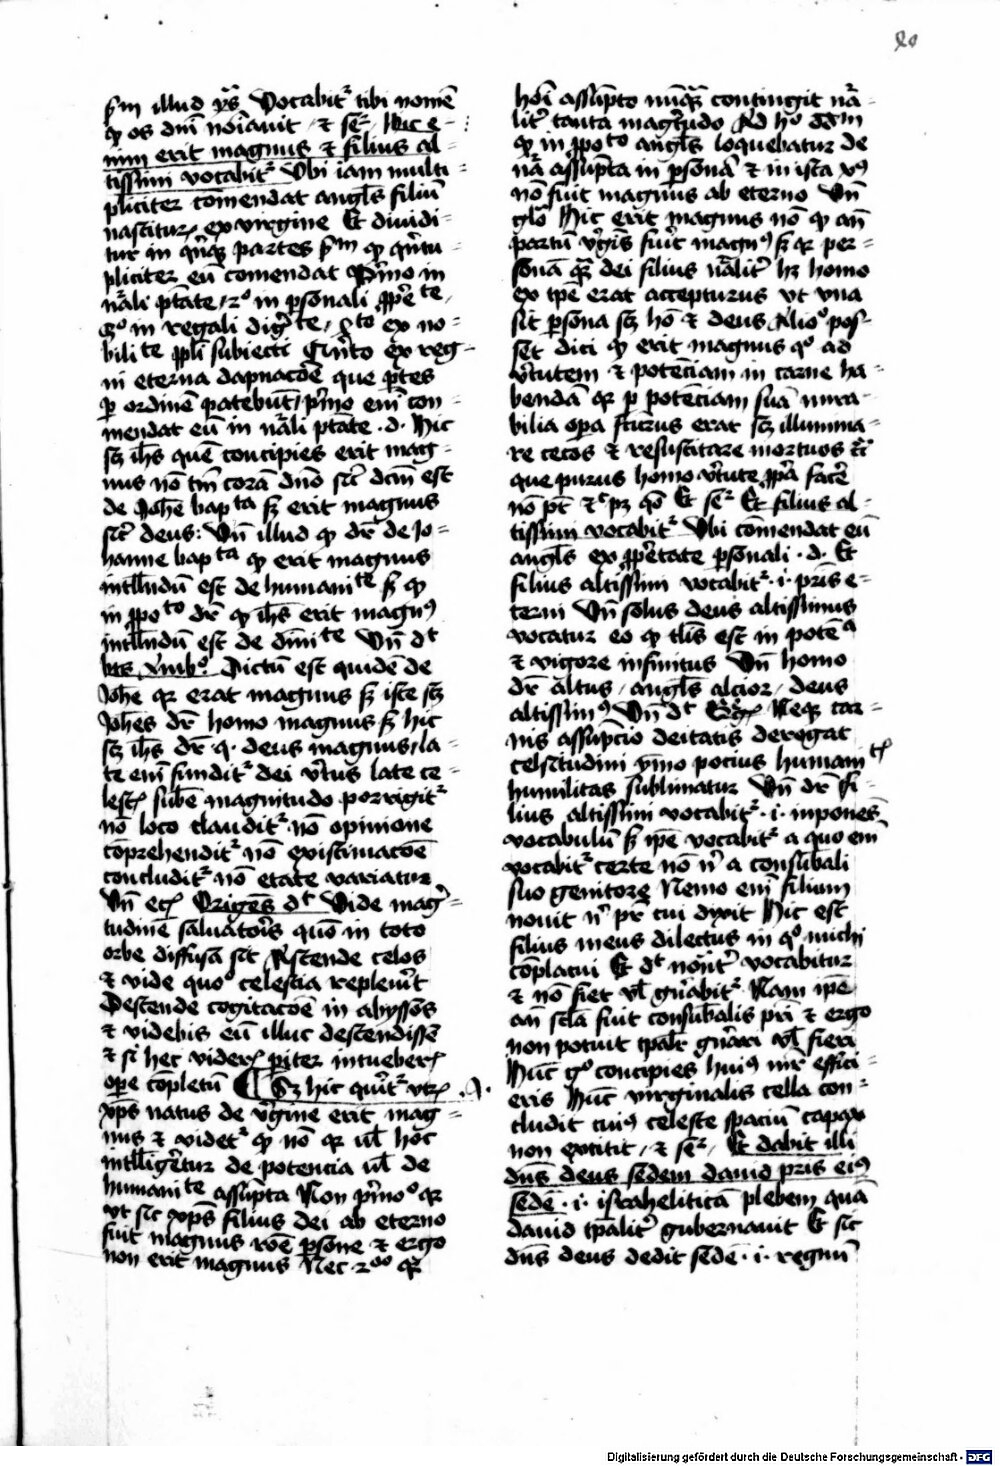 20
scdm illud ysa Vocabitr tibi nomē
qz os dnī noīavit / et seqr / Hic e-
nim erit magnus et filius al-
tissimi vocabitr Vbi iam multi-
pliciter cōmendat angls filiū
nascitur ex virgine Et dividi-
tur in qnqz partes scdm qz qntu-
pliciter eū comendat Primo in
nrali ptāte / 2o in psonali pprete /
3o in regali dignte / 4to ex no-
bilite ppli subiecti Quīto ex reg-
ni eterna dapnacōe que ptes
p ordinē patebunt / pmo enī com-
mendat eū in nrali ptāte . d . Hic
scz ihs quē concipies erit mag-
nus nō tm corā dno sic dcm est
de Johē bapta sz erit magnus
sic deus : Vn illud qz dr de Jo-
hanne bapta qz erit magnus
intllindū est de humanite sz qz
in pposito dr qz ihs erit magn9
intllindū est de divite Vn dt
bts Ambo. Dictū est quidē de
Johe qr erat magnus sz iste scz
Johēs dr homo magnus sz hic
scz ihs dr . q . deus magnus / la-
te enī fundit dei vtus late ce-
lest sube magnitudo porrigitr
nō loco claudit nō opinione
cōprehendit nō existimacōe
concludit nō etate variatur
Vn et Origenēs dt Vide magni-
tudinē salvatoris quō in toto
orbe diffusa sit Ascende celos
et vide quo celestia replevit
Descende cogitacōe in abyssos
et videbis eū illuc descendisse
et si hec videres piter intueberis
ope cōpletū ¶ Sz hic querit utrū
xps natus de vgine erit mag-
nus et videtr qz nō qr vl hoc
intlligertur de potencia vl de
humanite assupta Non pmo qr
ut sic xps filius dei ab eterno
fuit magnus rōe psone et ergo
non erit magnus Nec 2o qr
hoī assūpto nūqz contingit na-
lit tanta magtudo Ad ho ddm
qz in pposito angls loquebatur de
na assupta in psona et in ista xps
nō fuit magnus ab eterno Vn
glo Hic erit magnus nō qz an
partū vgis fuit magn9 sz qr per-
sona qr dei filius nralit hz homo
ex tpe erat accepturus ut una
sit persona scz hō et deus Alio pos-
set dici qz erit magnus quo ad
vtutem et potenciam in carne ha-
bendā qr p potenciam suā mira-
bilia opa fturus erat scz illumina-
re cecos et resuscitare mortuos etc
que purus homo vtute ppa facē
nō pt Et seqr Et filius al-
tissimi vocabitr Vbi cōmendat eū
angls ex ppetate psonali . d . Et
filius altissimi vocabitr . i . pris e-
terni Vn solus deus altissimus
vocatur eo qz tlis est in potēa
et vigore infinitus Vn homo
dr altus / angls alcior / deus
altissim9 Vn dt Neqz car-
nis assūpcio deitatis derogat
celsitudini ymo pocius humanite
humilitas sublimatur Vn dr fi-
lius altissimi vocabitr . i . inpones
vocabulū sz ipe vocabitr a quo em
vocabitr certe nō n a consubali
suo genitore Nemo enī filium
novit n pr cui dixit Hic est
filius meus dilectus in quo michi
cōplacui Et dt notāter vocabitur
et nō fiet vl gnabitr Nam ipe
an scla fuit consubalis pri et ergo
non potuit tpalr gnerari vl fieri
Hūc go concipies hui9 mr effici-
eris Hūc virginalis cella con-
cludit cui9 celeste spaciū capax
non extitit / et seqr / Et dabit illi
dns deus sedem david pris ei9
sedē . i . israheliticā plebem quā
david tpalit gubernavit Et sic
dns deus dedit sedē . i . regnū
Digitalisierung gefördert durch die Deutsche Forschungsgemeinschaft - DFG